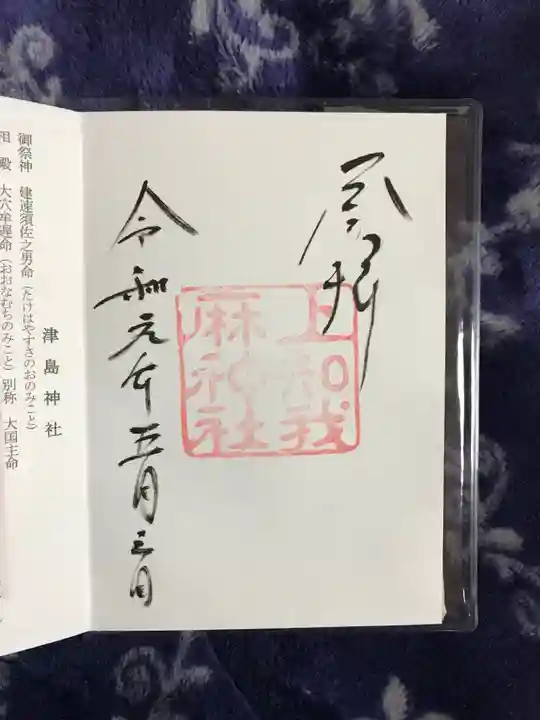 奉拝
上知我
麻神社
令和元年五月三日
津島神社
御祭神 建速須佐之男命(たけはやすさのおのみこと)
相殿 大穴牟遅命(おおなむちのみこと)別称 大国主命